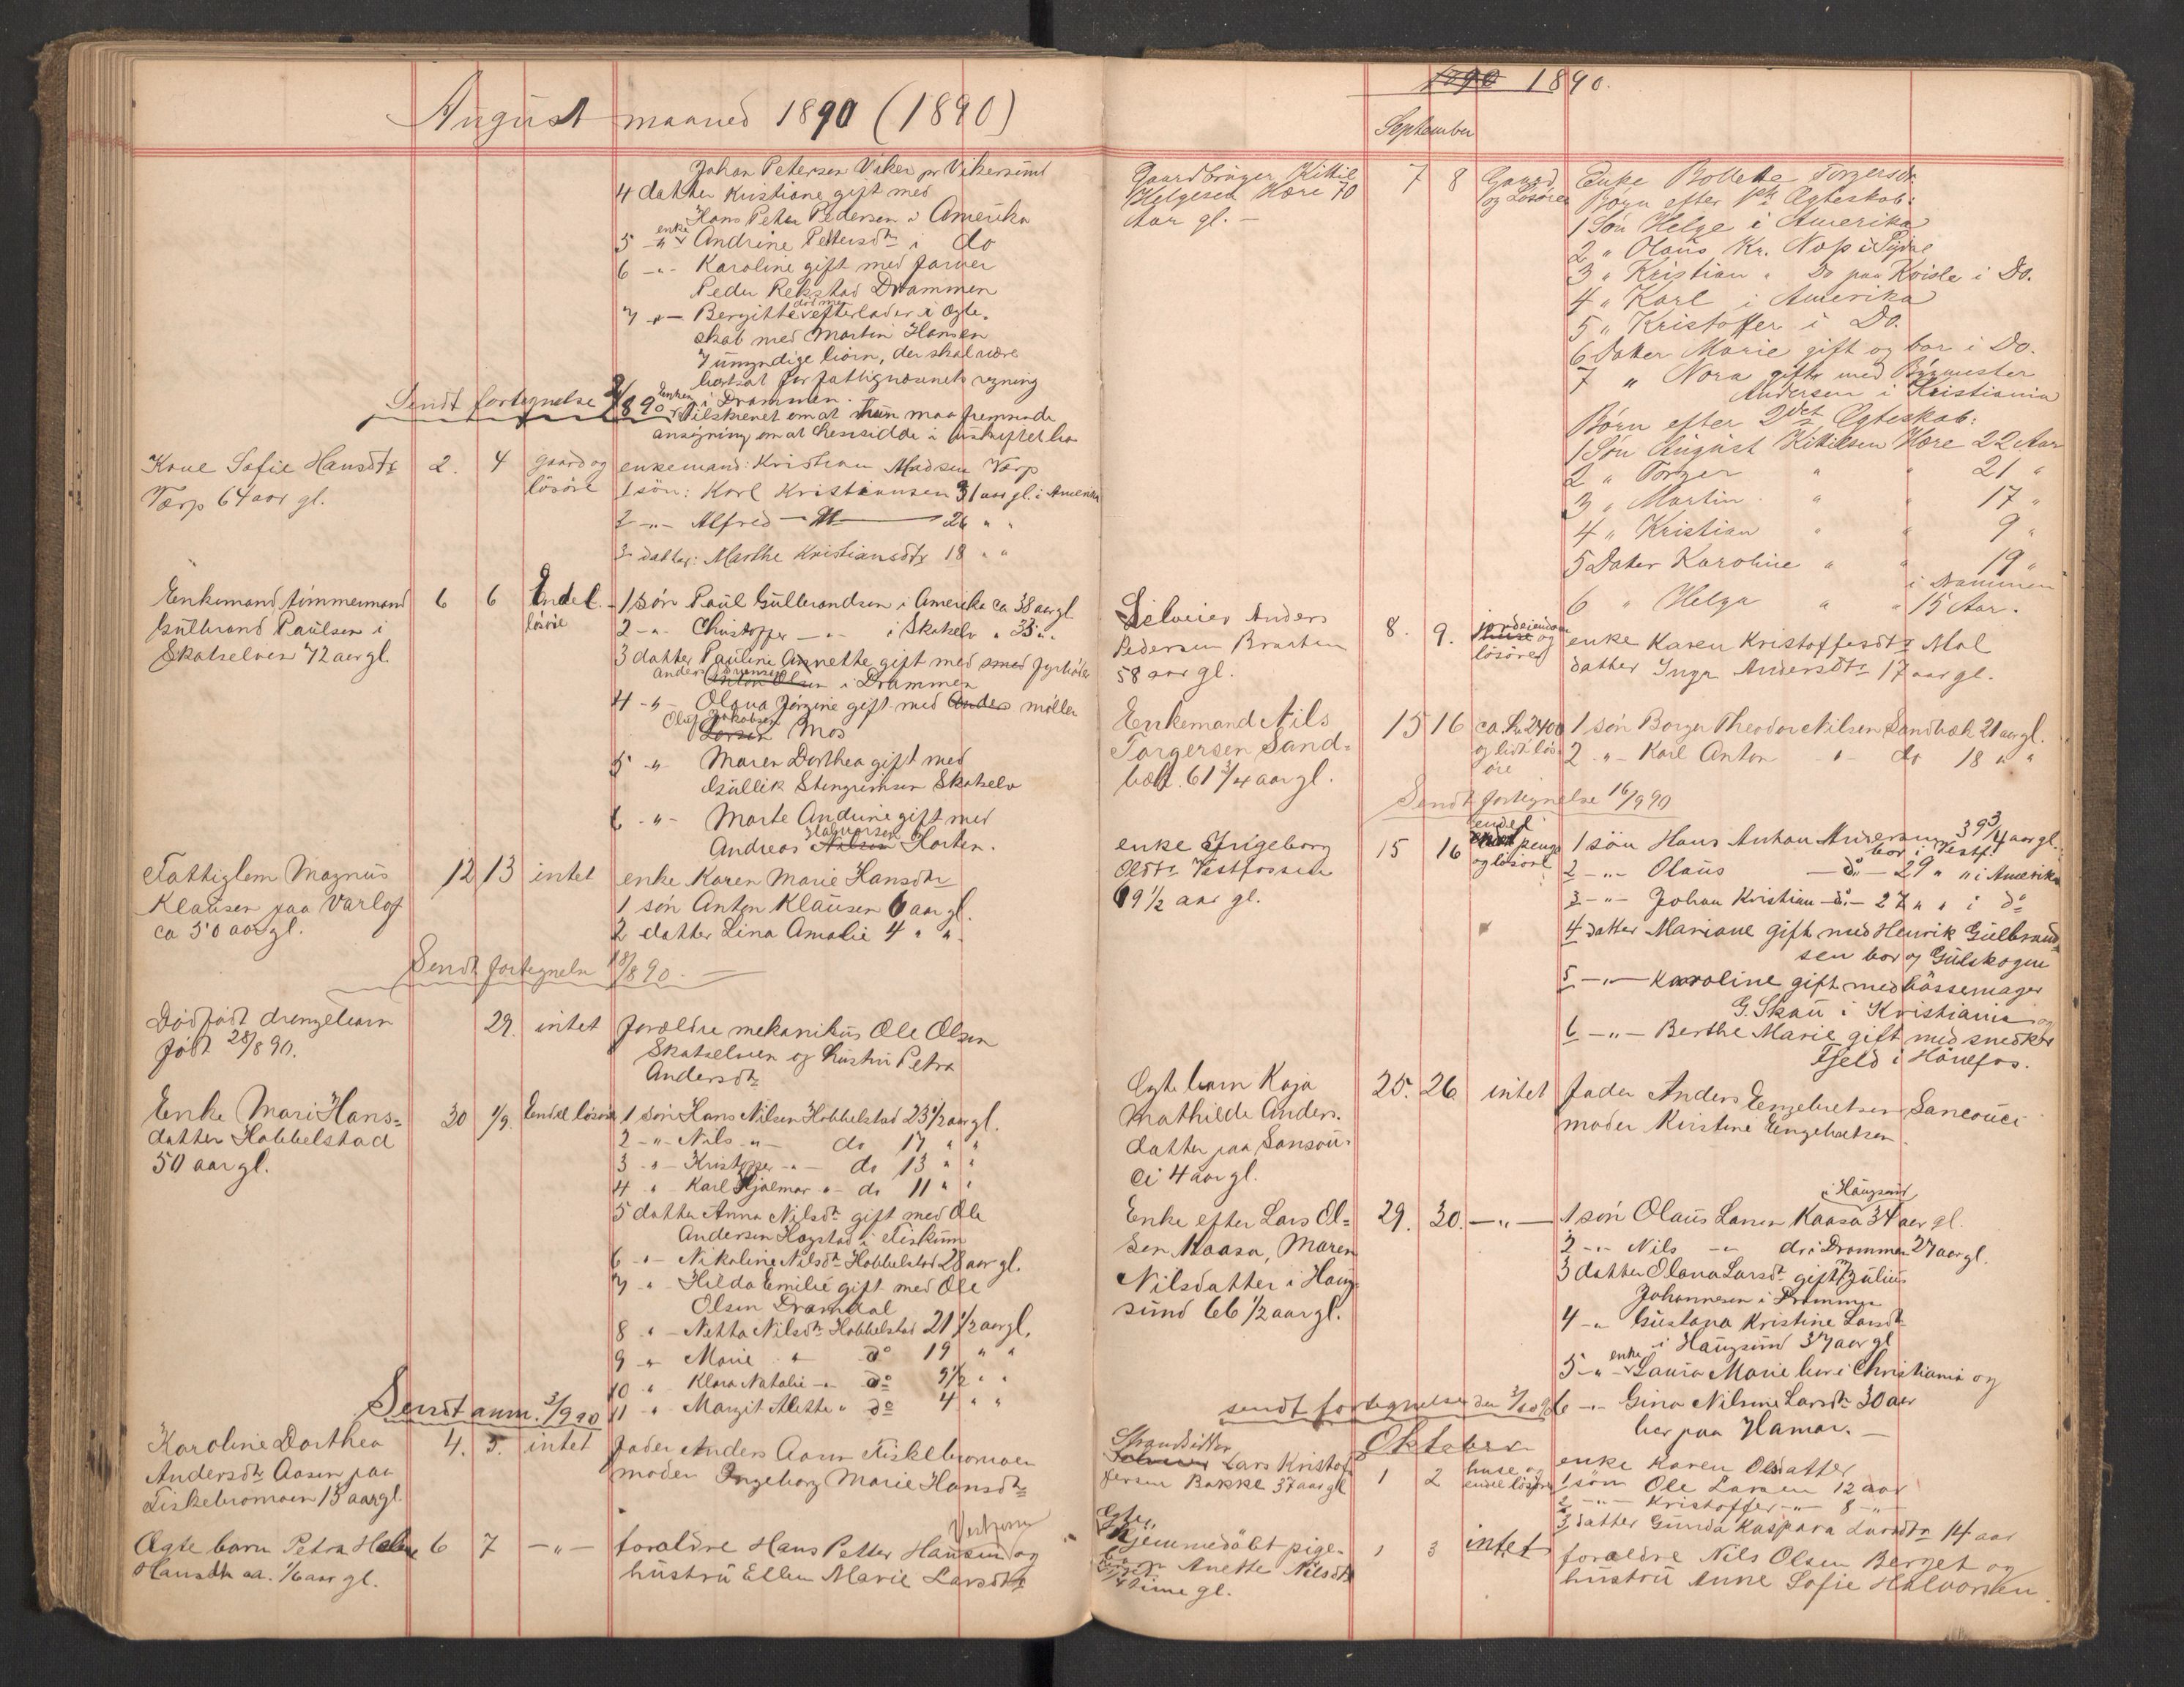 August maaned 1890 (1890)
Johan Petersen Viker pr Vikersund
4 datter Kristiane gift med
Hans Peter Pedersen i Amerika
5 -"- enke Andrine Pettersdtr i do
6 -"- Karoline gift med farver
Peder Rekstad Drammen
7 -"- Bergitte død men efterlader i ægte-
skab med Martin Hansen
7 umyndige börn, der skal være
bortsat for fattigvæsenets regning
i Drammen.
Sendt fortegnelse 2/8 90 Enken tilskrevet om at hun maa fremsende
ansögning om at hensidde i uskiftet bo
Kone Sofie Hansdtr 2. 4 gaard og enkemand: Kristian Madsen Værp
Værp 64 aar gl. lösöre 1 sön: Karl Kristiansen 31 aar gl. i Amerika
2 -"- Alfred — 26 " "
3 datter: Marthe Kristiansdtr 18 " "
Enkemand tömmermand 6 6 Endel 1 sön Paul Gulbrandsen i Amerika ca 38 aar gl.
Gulbrand Paulsen i lösöre 2 -"- Christoffer -"- i Skotselv " 35 " "
Skotselven 72 aar gl. 3 datter Pauline Annette gift med smed fyrböder
Anders Svensen Anton Olsen i Drammen
4 -"- Olava Jörgine gift med Anders möller
Oluf Jakobsen Larsen Mos
5 -"- Maren Dorthea gift med
Gullik Stengrimsen Skotselv
6 -"- Marte Andrine gift med
Andreas Halvorsen Nilsen Horten.
Fattiglem Magnus 12 13 intet enke Karen Marie Hansdtr
Klausen paa Varlo 1 sön Anton Klausen 6 aar gl.
ca 50 aar gl. 2 datter Lina Amalie 4 " "
Sendt fortegnelse 18/8 90.
Dödfödt drengebarn 29. intet Forældre mekanikus Ole Olsen
födt 28/8 90. Skotselven og hustru Petra
Andersdtr
Enke Mari Hans- 30 1/9. Endel lösöre 1 sön Hans Nilsen Hobbelstad 23 1/2 aar gl.
datter Hobbelstad 2 -"- Nils -"- do 17 " "
50 aar gl. 3 -"- Kristoffer -"- do 13 " "
4 " Karl Hjalmar -"- do 11 " "
5 datter Anna Nilsdtr gift med Ole
Andersen Hagstad i Fiskum
6 -"- Nikoline Nilsdtr Hobbelstad 28 aar gl.
7 -"- Hilda Emilie gift med Ole
Olsen Dramdal
8 " - Netta Nilsdtr Hobbelstad 21 1/2 aar gl.
9 -"- Marie " do 19 " "
10 " Klara Natalie -"- do 9 1/2 " "
11 " Margit Alette " do 4 " "
Sendt anm. 3/9 90
Karoline Dorthea 4. 5. intet Fader Anders Aasen Fiskebromoen
Andersdtr Aasen paa moder Ingeborg Marie Hansdtr
Fiskebromoen 15 aar gl.
Ægte barn Petra Helene 6 7 -"- forældre Hans Petter Hansen og
Hansdtr aa. 1/6 aar gl. hustru Ellen Marie Larsdtr
1890 1890.
September
Gaardbruger Kittil 7 8 Gaard Enke Bollette Torgersdr.
Helgesen Kære 70 og Lösöre Börn efter 1ste Ægteskab:
Aar gl. - 1 Sön Helge i Amerika
2 " Olaus Kr. Næss i Sigdal
3 " Kristian " Do paa Kvisle i Do.
4 " Karl i Amerika
5 " Kristoffer i Do.
6 Datter Marie gift og bor i Do.
7 " Nora gift med Bygmester
Andersen i Kristiania
Börn efter 2det Ægteskab:
1 Sön August Kittilsen Kære 22 Aar
2 " Torger " " 21 "
3 " Martin " " 17 "
4 " Kristian " " 9 "
5 Datter Karoline " " 19 "
i Drammen
6 " Helga " " 15 Aar.
Selveier Anders 8. 9. jordeiendom huse og enke Karen Kristoffersdtr Mal
Pedersen Braaten lösöre datter Inga Andersdtr 17 aar gl.
58 aar gl.
Enkemand Nils 15 16 ca. kr. 2400 1 sön Borger Theodor Nilsen Sandbæk 21 aar gl.
Torgersen Sand- og lidt lös- 2 -"- Karl Anton -"- do 18 " "
bæk. 61 3/4 aar gl. öre
Sendt fortegnelse 16/9 90
enke Ingeborg 15 16 endel penge 1 sön Hans Anton Andersen 39 3/4 aar gl.
Olsdtr Vestfossen og lösöre bor i Vestf.
69 1/2 aar gl. 2 -"- Olaus -do- 29 " " i Amerika
3 -"- Johan Kristian -do- 27 " " i do
4 datter Mariane gift med Henrik Gulbrand-
sen bor og Gulskogen
5 -"- Karoline gift med bössemager
G. Skau i Kristiania og
6 -"- Berthe Marie gift med snedker
Fjeld i Hönefos.
Ægte barn Kaja 25. 26 intet Fader Anders Engebretsen Sancouci
Mathilde Anders- moder Kirstine Engebretsen.
datter paa Sansou-
ci 4 aar gl.
Enke efter Lars Ol- 29. 30. -"- 1 sön Olaus Larsen Kaasa i Haugsund 34 aar gl.
sen Kaasa, Maren 2 -"- Nils -"- do i Drammen 27 aar gl.
Nilsdatter i Haug- 3 datter Olava Larsdtr gift m Julius
sund 66 1/2 aar gl. Johannesen i Drammen
4 -"- Gustava Kristine Larsdtr
i Haugsund 37 aar gl
5 -"- enke Laura Marie bor i Christiania og
sendt fortegnelse den 3/10 90 6 -"- Gina Nilsine Larsdtr 30 aar
bor paa Hamar. -
Oktober
Strandsidder Lars Kristof- 1 2 huse og enke Karen Olsdatter
fersen Bakke 37 aar gl endel lösöre 1 sön Ole Larsen 12 aar
2 -"- Kristoffer -"- 8 -"-
3 datter Gunda Kaspara Larsdtr 14 aar
Ægte,
hjemmedöbt pige- 1 3 intet forældre Nils Olsen Berget og
barn Anette Nilsdtr hustru Anne Sofie Halvorsen.
1/4 time gl.